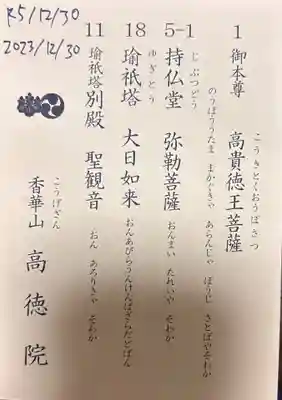 R5/12/30
2023/12/30
1 御本尊 高貴徳王菩薩
こうきとくおうぼさつ
のうぼううたま まかぎきゃ あらんじゃ ぼうじ さとばやそわか
5-1 持仏堂 弥勒菩薩
じぶつどう
おんまい たれいや そわか
18 瑜祇塔 大日如来
ゆぎとう
おんあびらうんけんばざらだどばん
11 瑜祇塔別殿 聖観音
おん あろりきゃ そわか
こうげざん
香華山 高徳院